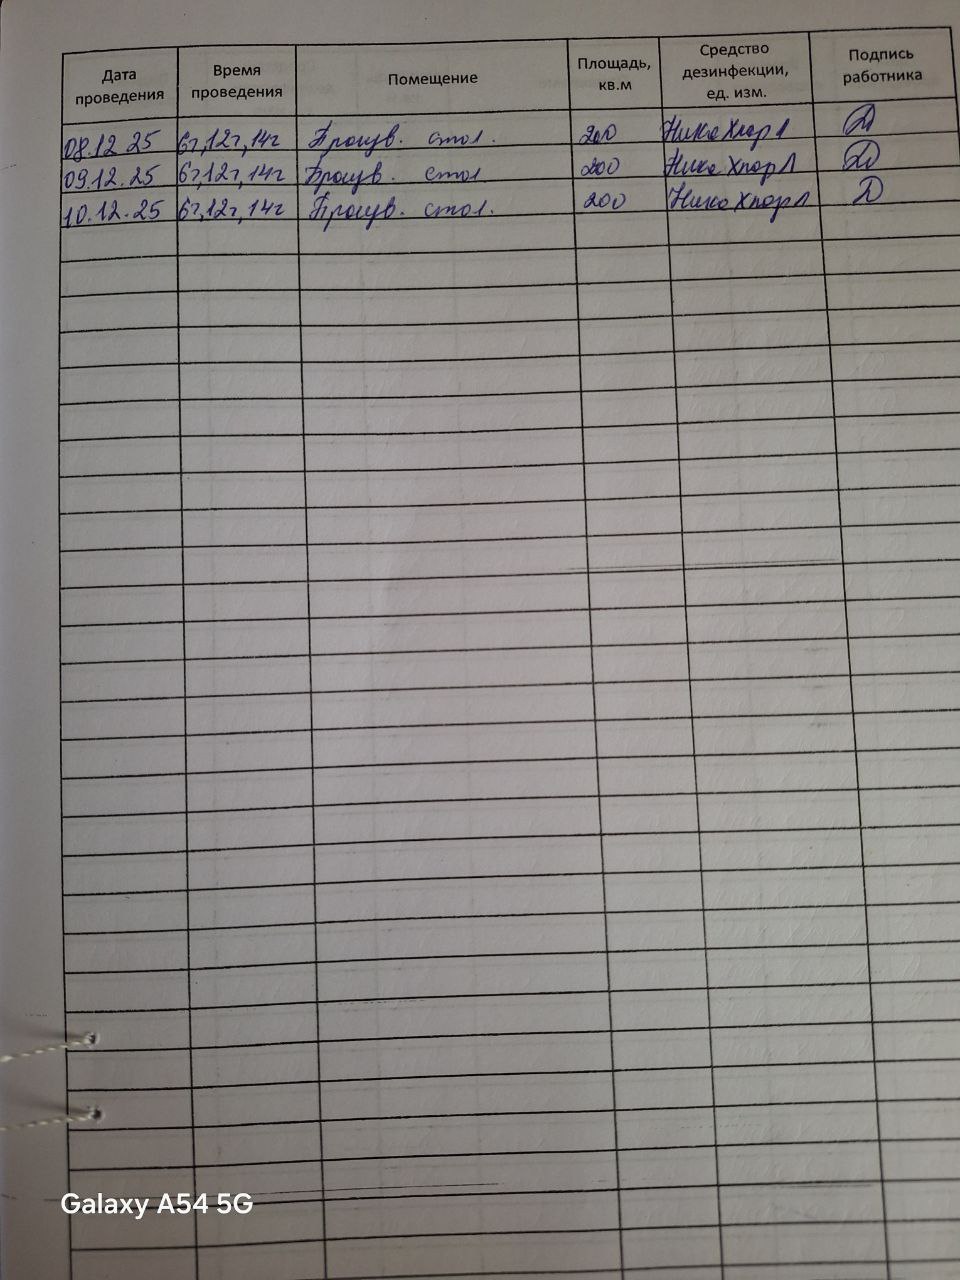 Дата проведения Время проведения Помещение Площадь, кв.м Средство дезинфекции, ед. изм. Подпись работника
08.12 25 6ч,12ч,14ч стол. 200 НикаХлор Л
09.12.25 6ч,12ч,14ч стол 200 Ника Хлор Л
10.12.25 6ч,12ч,14ч стол. 200 Ника Хлор Л
Galaxy A54 5G